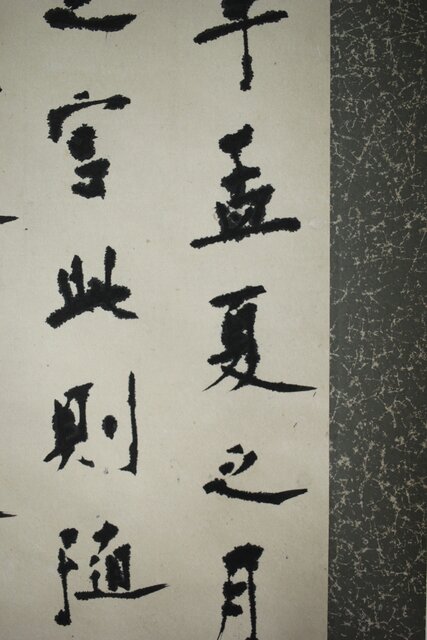 孟夏之月
之宮此則随